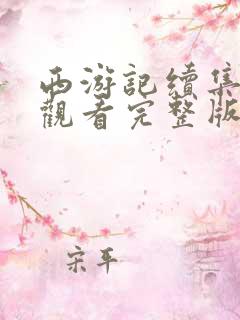 西游記續集
觀看完整版
宋平